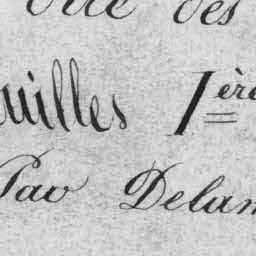 des
uilles 1ère
Par Delam